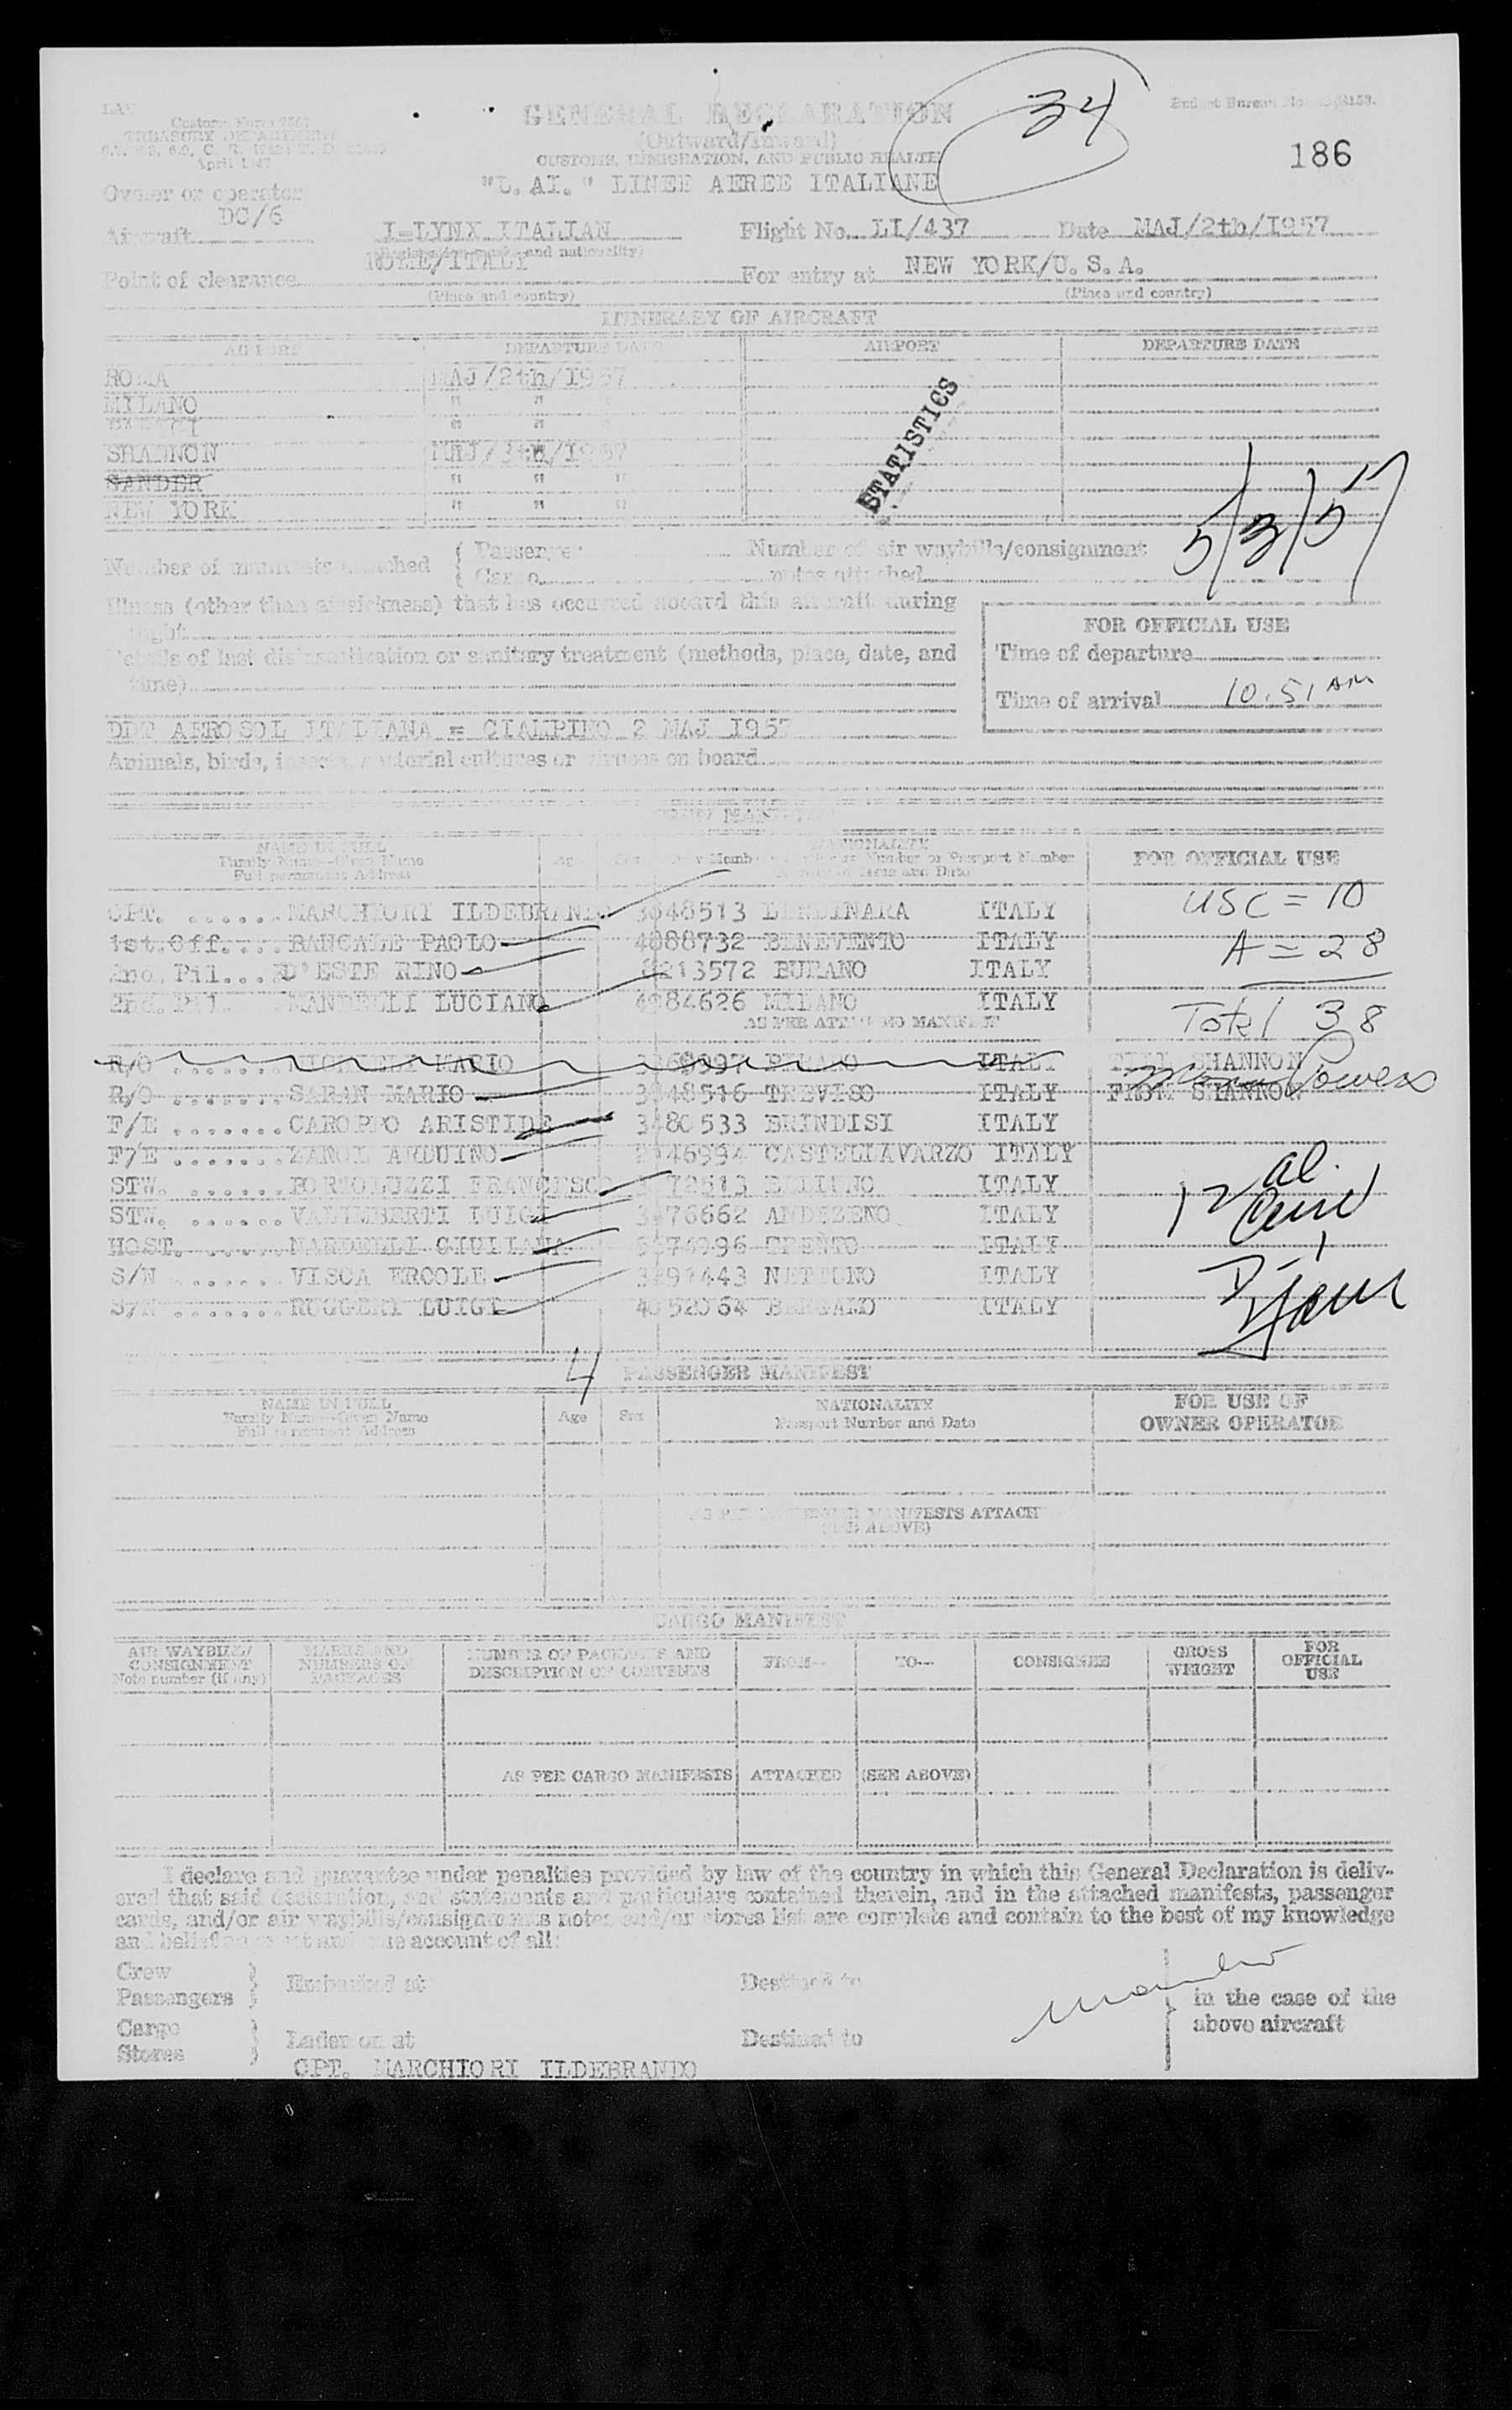 34
186
LAV
Customs Form 7507
TREASURY DEPARTMENT
April 1947
GENERAL DECLARATION
(Outward/Inward)
CUSTOMS, IMMIGRATION, AND PUBLIC HEALTH
"L.AI." LINEE AEREE ITALIANE
Owner or operator
Aircraft DC/6 I-LYNX ITALIAN Flight No. LI/437 Date MAJ/2th/1957
Point of clearance ROME/ITALY For entry at NEW YORK/U.S.A.
(Place and country) (Place and country)
ITINERARY OF AIRCRAFT
AIRPORT DEPARTURE DATE AIRPORT DEPARTURE DATE
ROMA MAJ/2th/1957
MILANO " "
" "
SHANNON MAJ/3th/1957
GANDER " " "
NEW YORK " " "
STATISTICS
5/3/57
Number of manifests attached { Passenger Number of air waybills/consignment
{ Cargo notes attached
Illness (other than airsickness) that has occurred aboard this aircraft during
flight
Details of last disinsectization or sanitary treatment (methods, place, date, and
time)
DDT AEROSOL ITALIANA = CIAMPINO 2 MAJ 1957
FOR OFFICIAL USE
Time of departure
Time of arrival 10.51 AM
Animals, birds, insects, bacterial cultures or viruses on board
NAME IN FULL NATIONALITY
Family Name--Given Name Age Sex
Full permanent Address
FOR OFFICIAL USE
CPT. ...... MARCHIORI ILDEBRANDO 3048513 LENDINARA ITALY
USC = 10
1st.Off.... RANCALE PAOLO 4088732 BENEVENTO ITALY
A = 28
2nd.Pil... D'ESTE RINO 213572 BURANO ITALY
2nd.Pil. MANDELLI LUCIANO 4084626 MILANO ITALY
AS PER ATTACHED MANIFEST
Total 38
R/O ....... MARIO ITALY TILL SHANNON
R/O ....... SARAN MARIO 3048516 TREVISO ITALY FROM SHANNON
F/E ....... CAROPPO ARISTIDE 3480533 BRINDISI ITALY
F/E ....... ZANOL ARDUINO 46994 CASTELLAVARZO ITALY
STW. ...... BORTOLUZZI FRANCESCO 72513 BELLUNO ITALY
STW. ...... VALIMBERTI LUIGI 3476662 ANDEZENO ITALY
HOST. ...... NARDELLI GIULIANA TRENTO ITALY
S/N ....... VISCA ERCOLE 443 NETTUNO ITALY
S/N ....... RUGGERI LUIGI 4052064 BERGAMO ITALY
12 al.
4
PASSENGER MANIFEST
NAME IN FULL NATIONALITY FOR USE OF
Family Name--Given Name Age Sex Passport Number and Date OWNER OPERATOR
Full permanent Address
AS PER PASSENGER MANIFESTS ATTACH
(SEE ABOVE)
CARGO MANIFEST
AIR WAYBILL/ CONSIGNMENT Note number (if any) MARKS AND NUMBERS ON PACKAGES NUMBER OF PACKAGES AND DESCRIPTION OF CONTENTS FROM-- TO-- CONSIGNEE GROSS WEIGHT FOR OFFICIAL USE
AS PER CARGO MANIFESTS ATTACHED (SEE ABOVE)
I declare and guarantee under penalties provided by law of the country in which this General Declaration is deliv-
ered that said declaration, and statements and particulars contained therein, and in the attached manifests, passenger
cards, and/or air waybills/consignments notes and/or stores list are complete and contain to the best of my knowledge
and belief an exact and true account of all:
Crew
Passengers } Embarked at Destined to
in the case of the
above aircraft
Cargo
Stores } Laden on at Destined to
CPT. MARCHIORI ILDEBRANDO